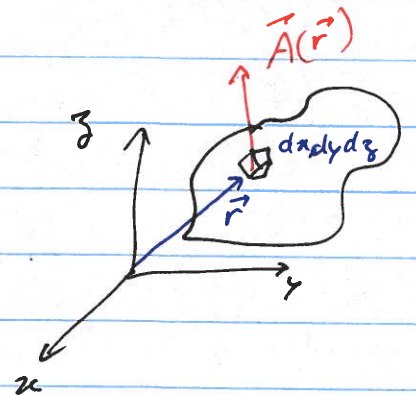 $\vec{A}(\vec{r})$
z
dx dy dz
$\vec{r}$
y
x